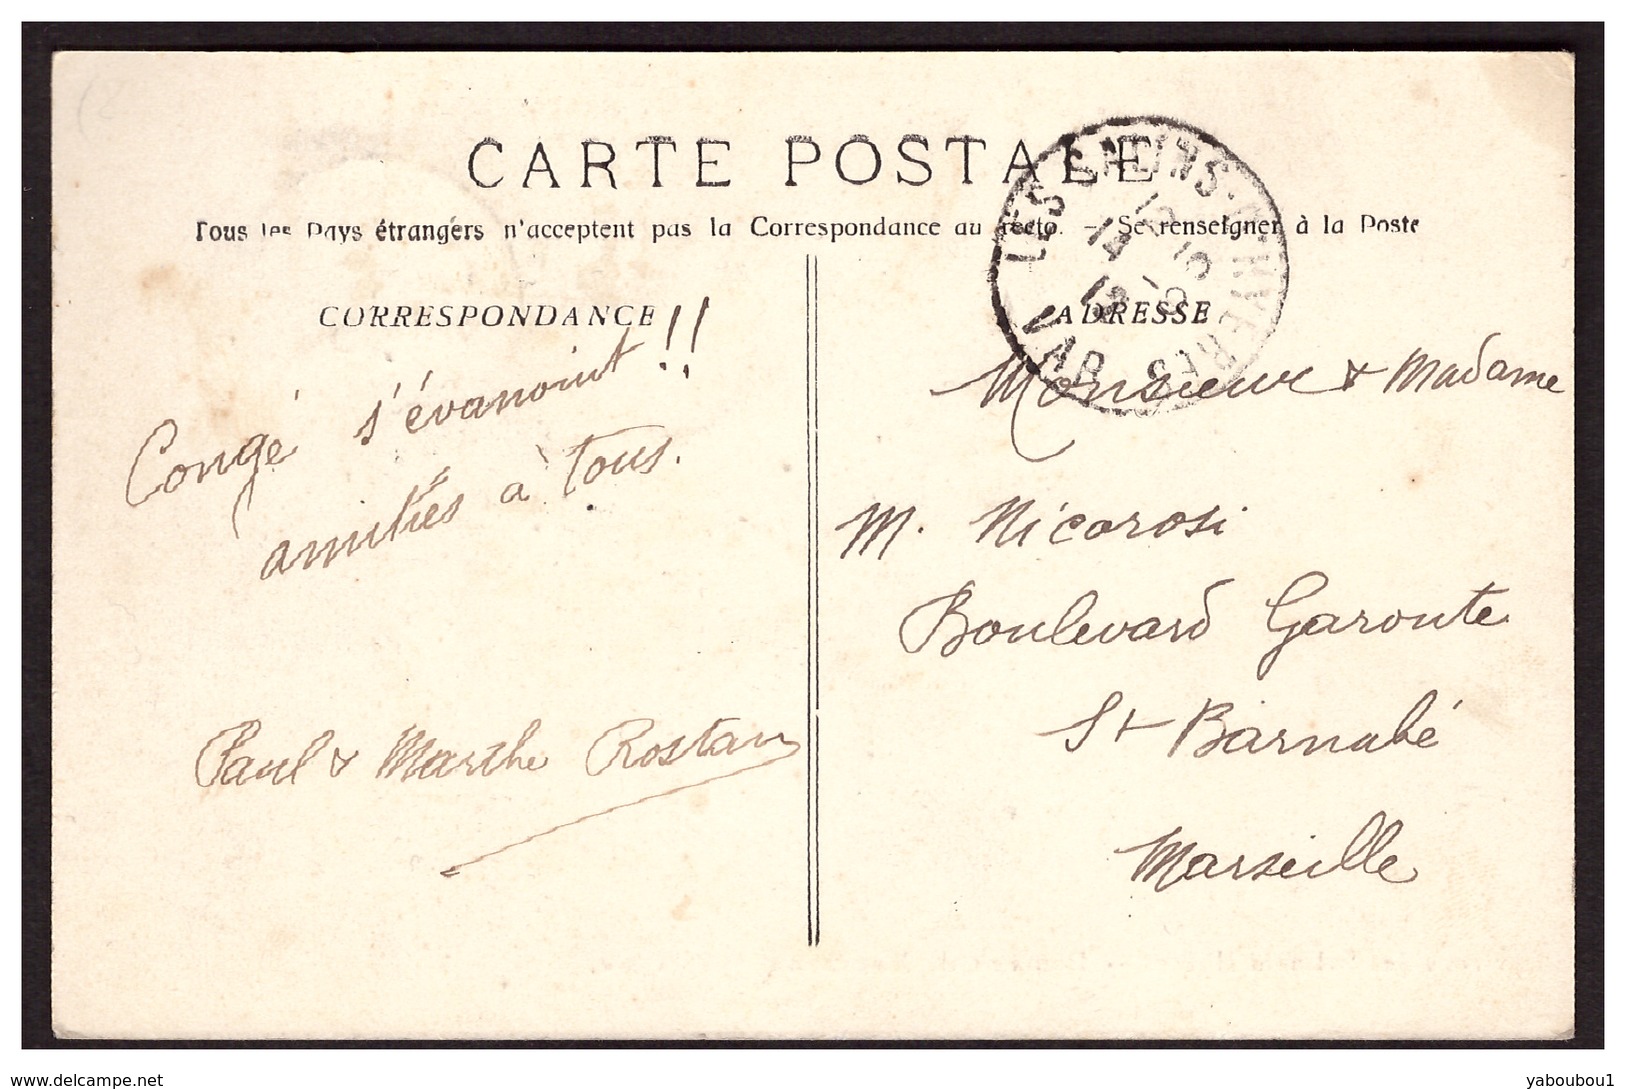 CARTE POSTALE
Tous les Pays étrangers n'acceptent pas la Correspondance au recto. - Se renseigner à la Poste
CORRESPONDANCE
Congé s'évanouit !!
amitiés à Tous.
Paul & Marthe Rostan
LES SALINS-D'HYERES
VAR
ADRESSE
Monsieur & Madame
M. Nicorosi
Boulevard Garoute
St Barnabé
Marseille
delcampe.net
yaboubou1